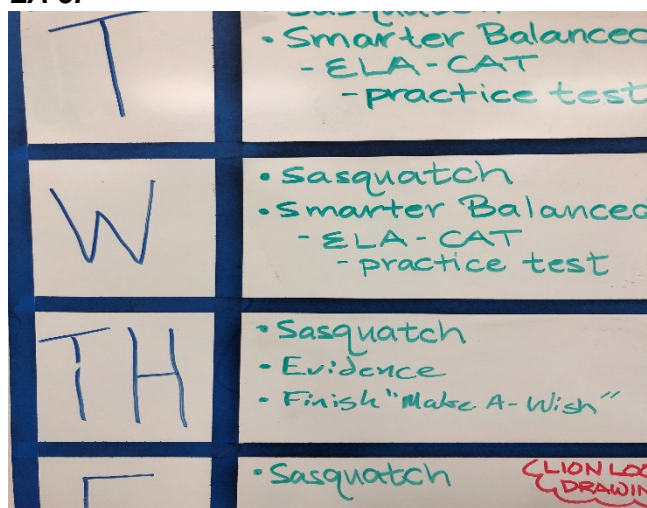 T
• Sasquatch
• Smarter Balanced
- ELA-CAT
- practice test
W
• Sasquatch
• Smarter Balanced
- ELA-CAT
- practice test
TH
• Sasquatch
• Evidence
• Finish "Make A-Wish"
• Sasquatch
LION LOO
DRAWIN